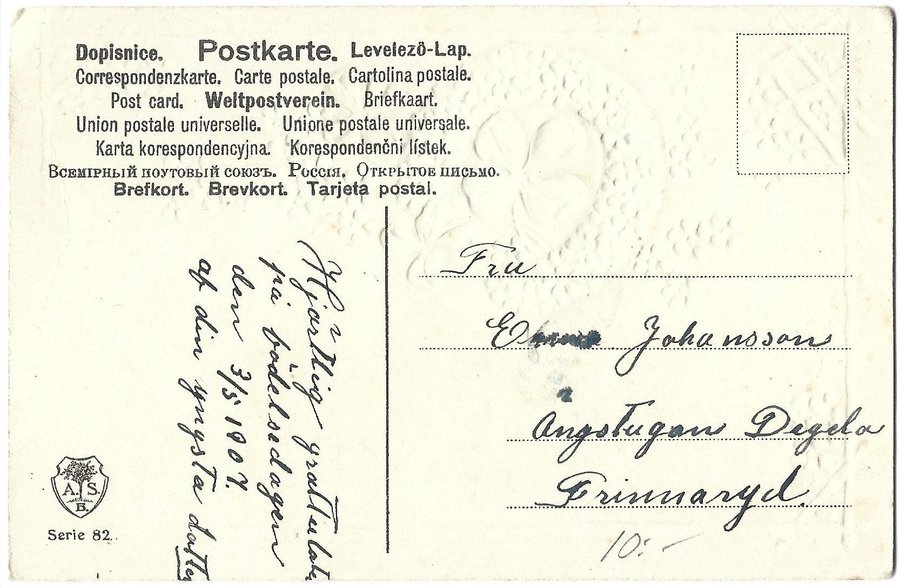 Dopisnice. Postkarte. Levelező-Lap.
Correspondenzkarte. Carte postale. Cartolina postale.
Post card. Weltpostverein. Briefkaart.
Union postale universelle. Unione postale universale.
Karta korespondencyjna. Korespondenčni lístek.
Всемірный почтовый союзъ. Россія. Открытое письмо.
Brefkort. Brevkort. Tarjeta postal.
Hjärtlig grattulat
på födelsedagen
den 3/5 1907.
af din yngsta dotter
Fru
Johansson
Ängstugan Degla
Frinnaryd.
10:-
A. S.
B.
Serie 82.